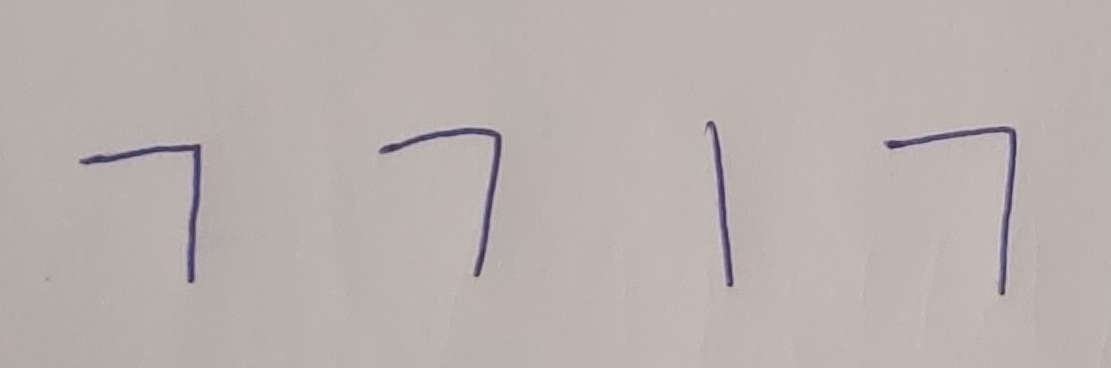 7 7 1 7